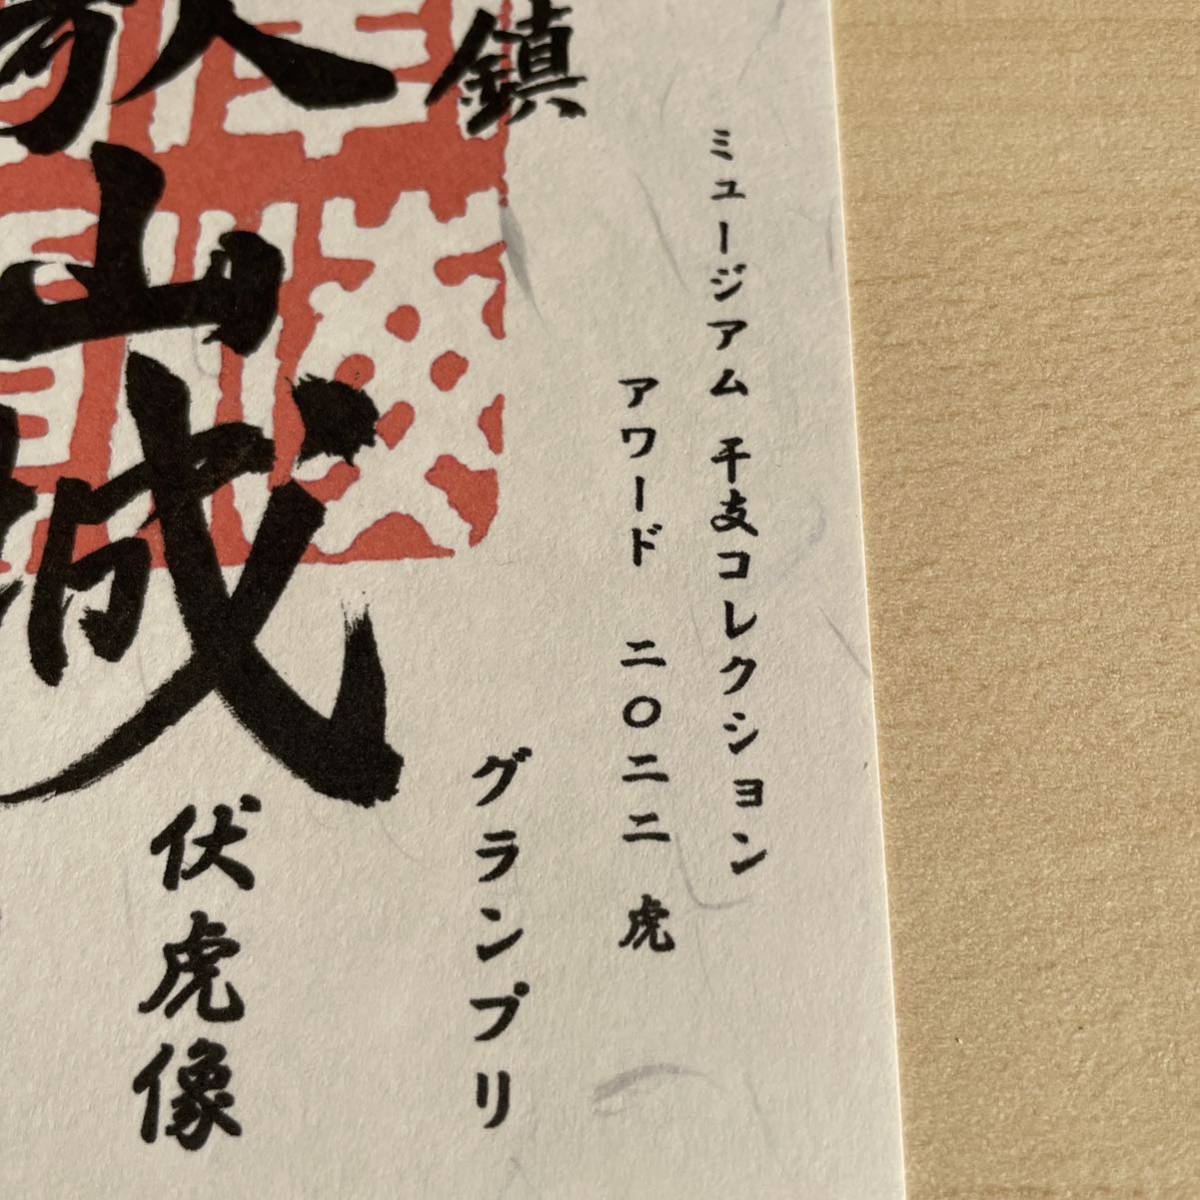 ミュージアム 干支コレクション
アワード 二〇二二 虎
鎮
グランプリ
歌山城
伏虎像